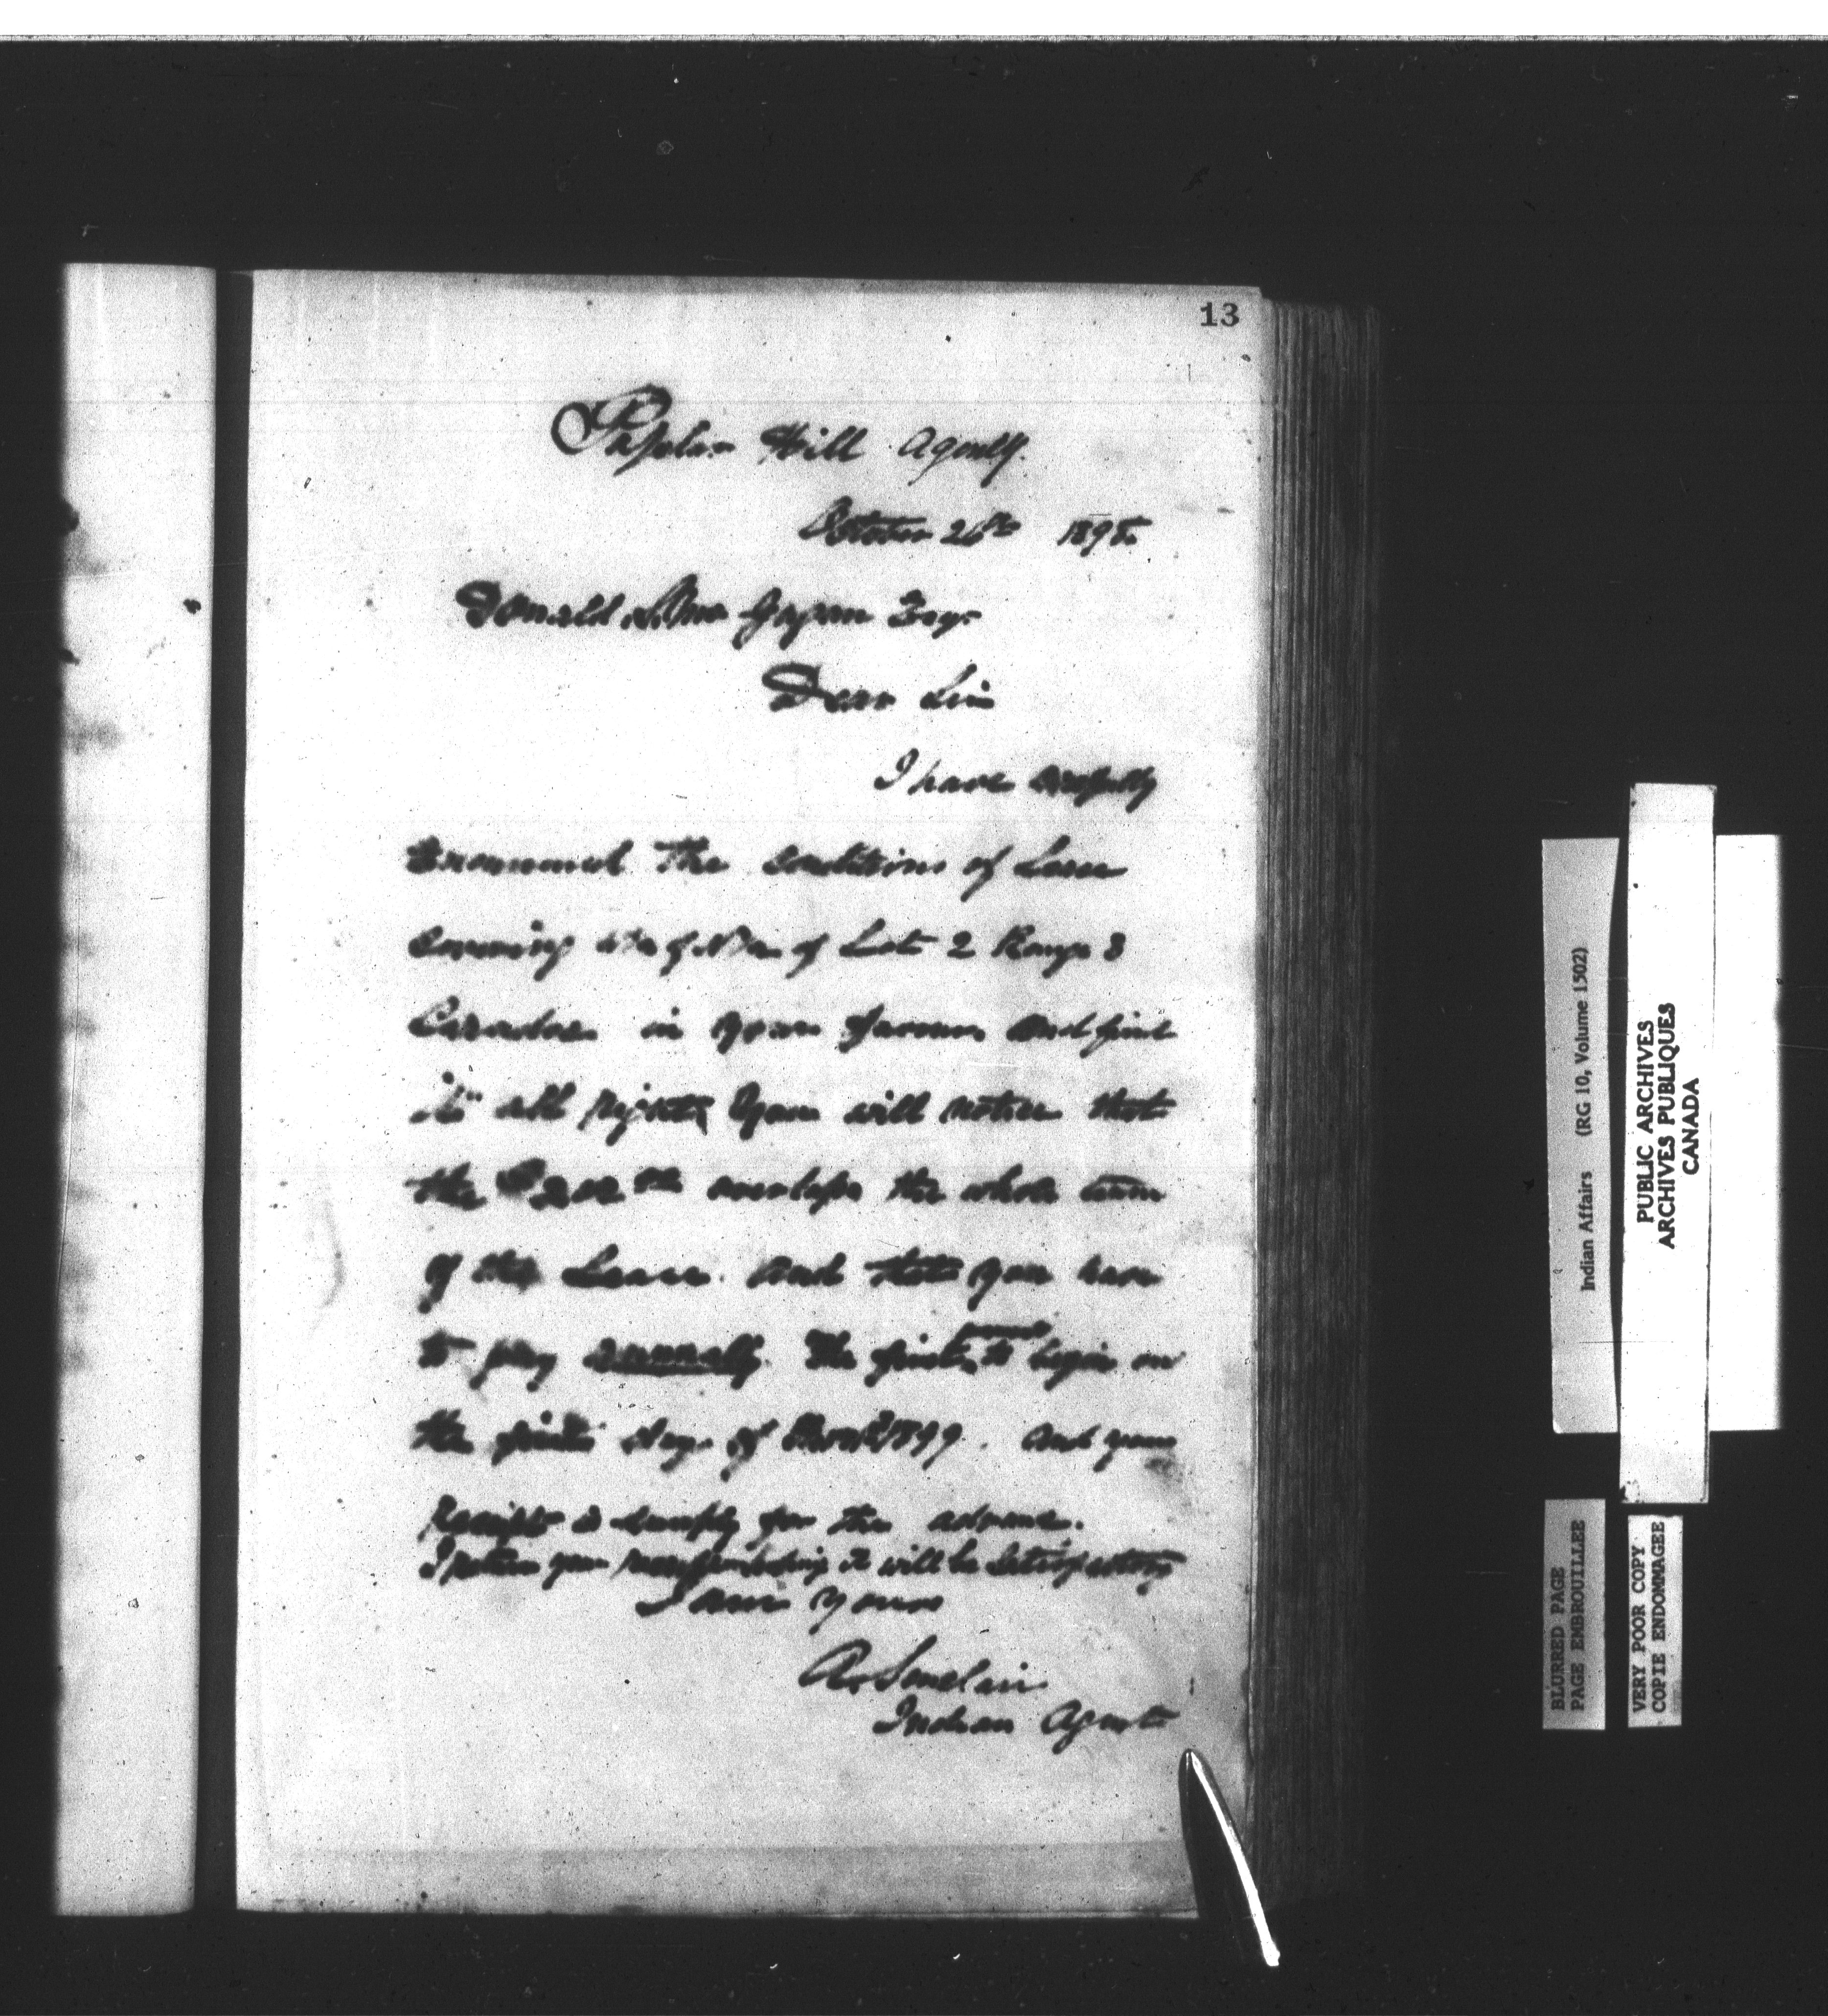 13
Poplar Hill Agency.
October 26th 1898
Donald Esqr
Dear Sir
I have carefully
Examined The Conditions of Lease
Covering of of Lot 2 Range 3
Caradoc in your favour and find
it all right, you will notice that
the overlaps the whole term
of the Lease. And that you have
to pay Annually. The first to begin on
the first day of 1899. And your
Receipt is simply for the advance.
I return your hoping it will be Satisfactory
I am yours
A. Sinclair
Indian Agent
Indian Affairs (RG 10, Volume 1502)
PUBLIC ARCHIVES
ARCHIVES PUBLIQUES
CANADA
BLURRED PAGE
PAGE EMBROUILLEE
VERY POOR COPY
COPIE ENDOMMAGEE